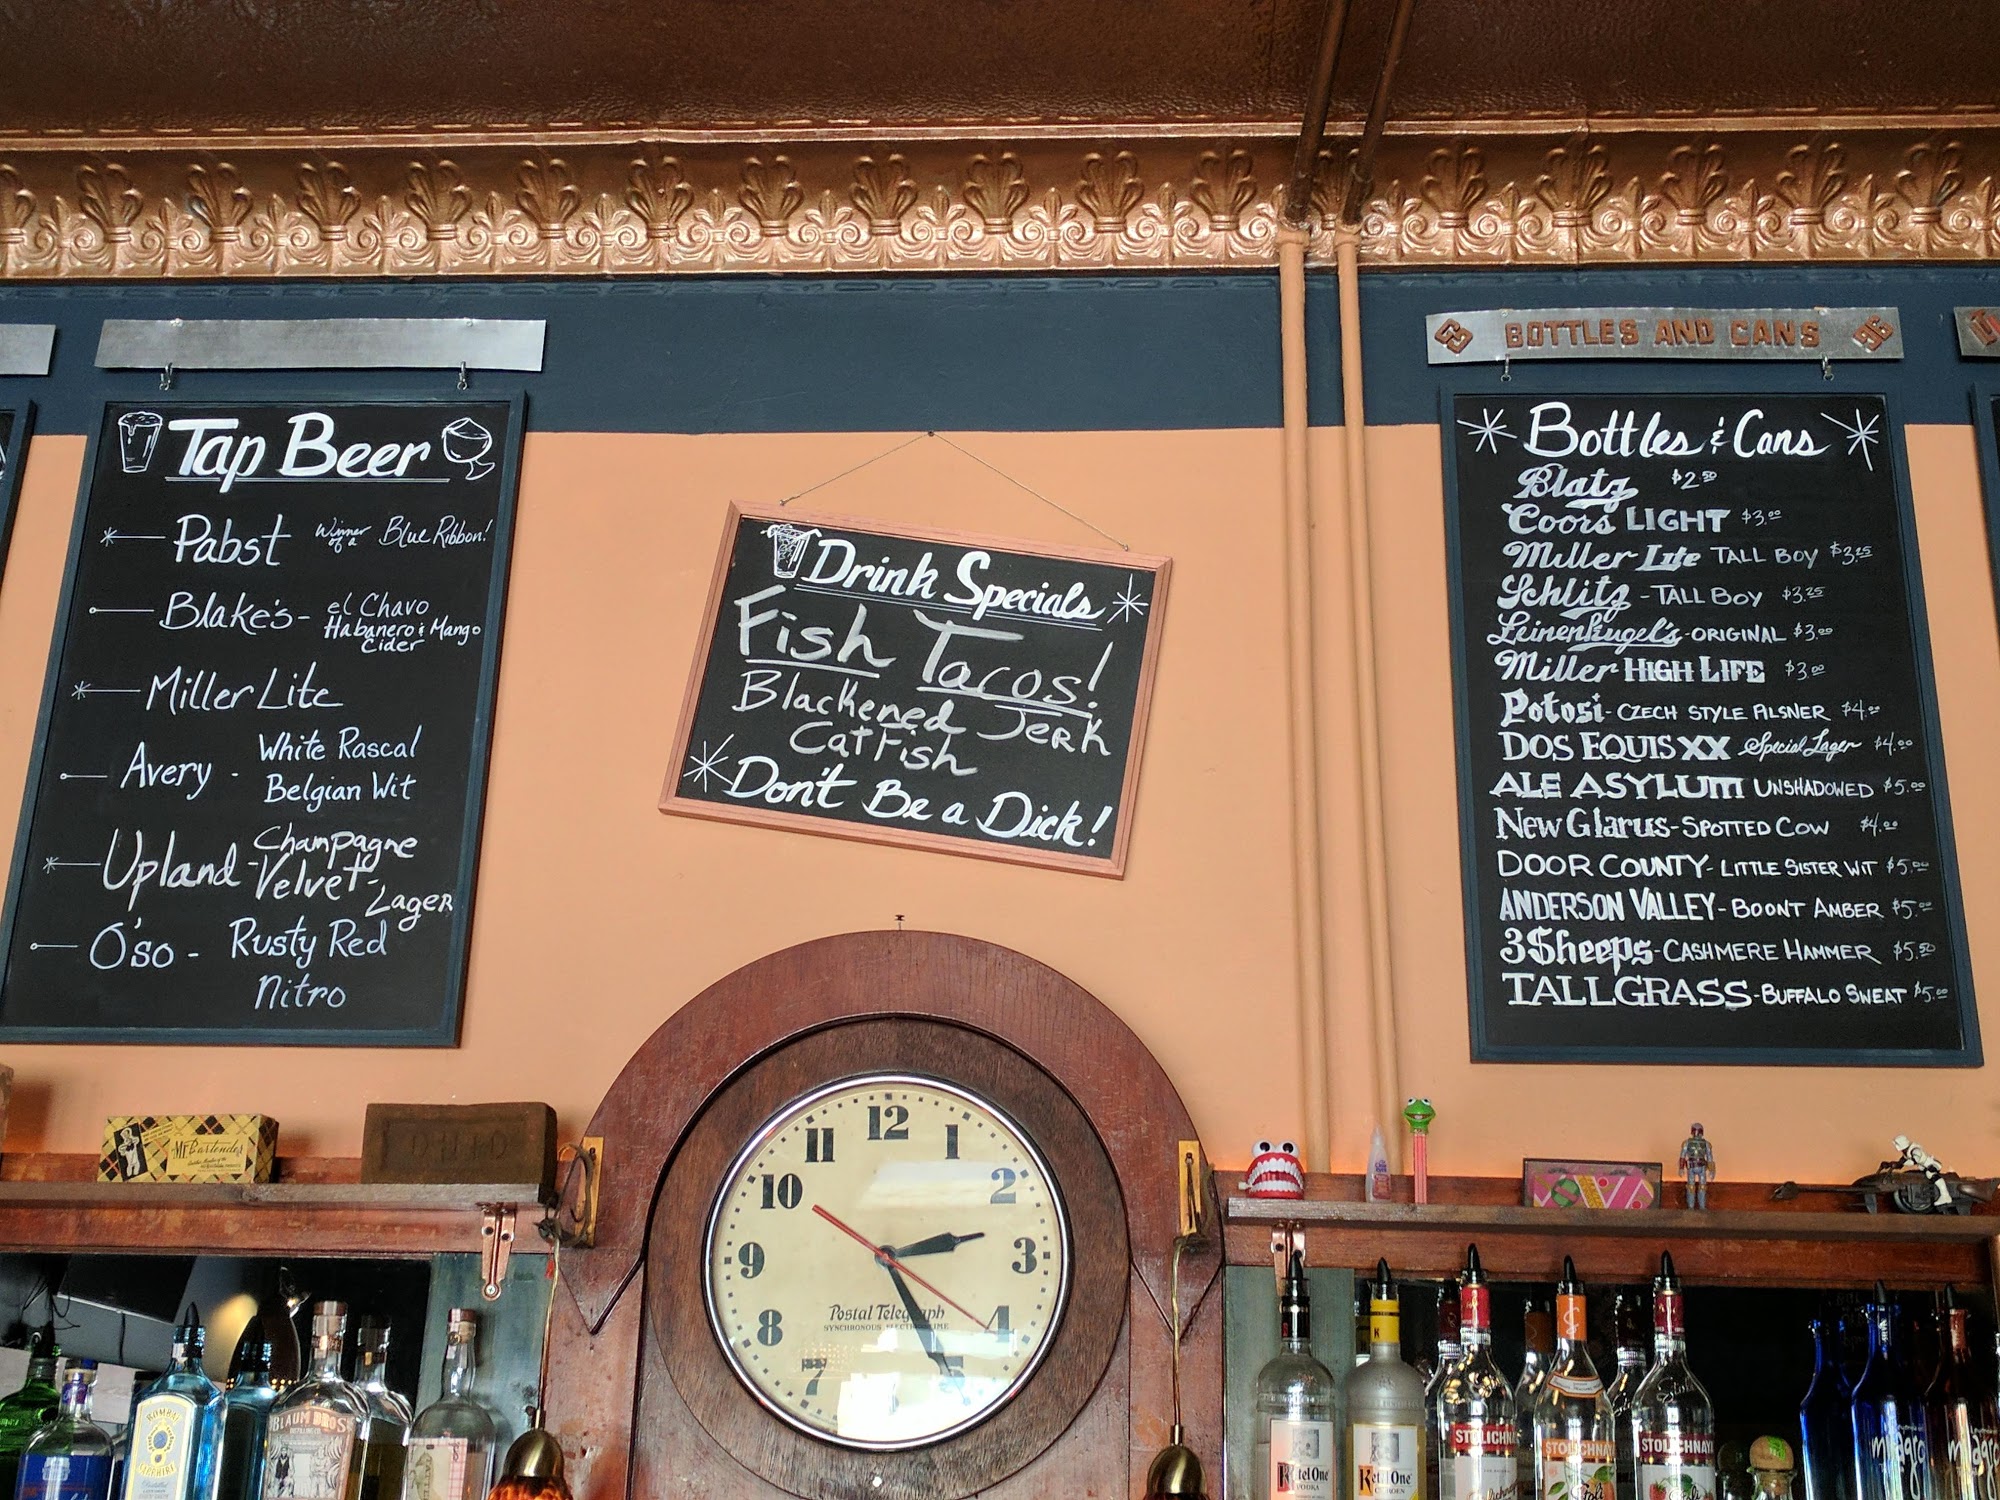 BOTTLES AND CANS
Tap Beer
Pabst Winner of a Blue Ribbon!
Blake's - el Chavo
Habanero & Mango
Cider
Miller Lite
Avery - White Rascal
Belgian Wit
Upland - Champagne
Velvet -
Lager
O'so - Rusty Red
Nitro
Drink Specials
Fish Tacos!
Blackened Jerk
Catfish
Don't Be a Dick!
Bottles & Cans
Blatz $2.50
Coors LIGHT $3.00
Miller Lite TALL BOY $3.25
Schlitz - TALL BOY $3.25
Leinenkugel's - ORIGINAL $3.00
Miller HIGH LIFE $3.00
Potosi - CZECH STYLE PILSNER $4.00
DOS EQUIS XX Special Lager $4.00
ALE ASYLUM UNSHADOWED $5.00
New Glarus - SPOTTED COW $4.00
DOOR COUNTY - LITTLE SISTER WIT $5.00
ANDERSON VALLEY - BOONT AMBER $5.00
3 Sheeps - CASHMERE HAMMER $5.50
TALLGRASS - BUFFALO SWEAT $5.00
Mr. Bartender
12
11 1
10 2
9 3
8 4
7 5
Postal Telegraph
SYNCHRONOUS ELECTRIC TIME
BOMBAY
SAPPHIRE
BLAUM BROS
DISTILLING CO.
Ketel One
VODKA
K
Ketel One
CITROEN
STOLICHNAYA
STOLICHNAYA
Stoli
STOLICHNAYA
Stoli
milagro
milagro